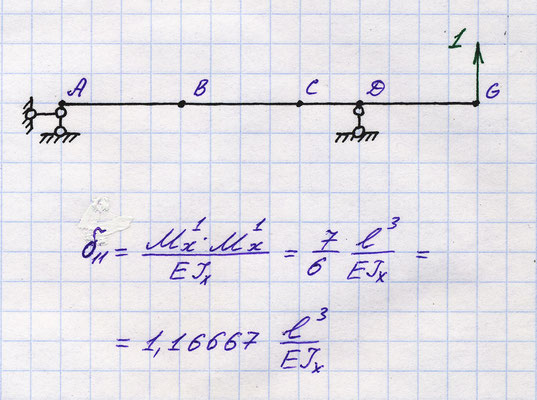 1
A B C D G
δ₁₁ = (Mx¹·Mx¹)/(EJx) = 7/6 l³/(EJx) =
= 1,16667 l³/(EJx)